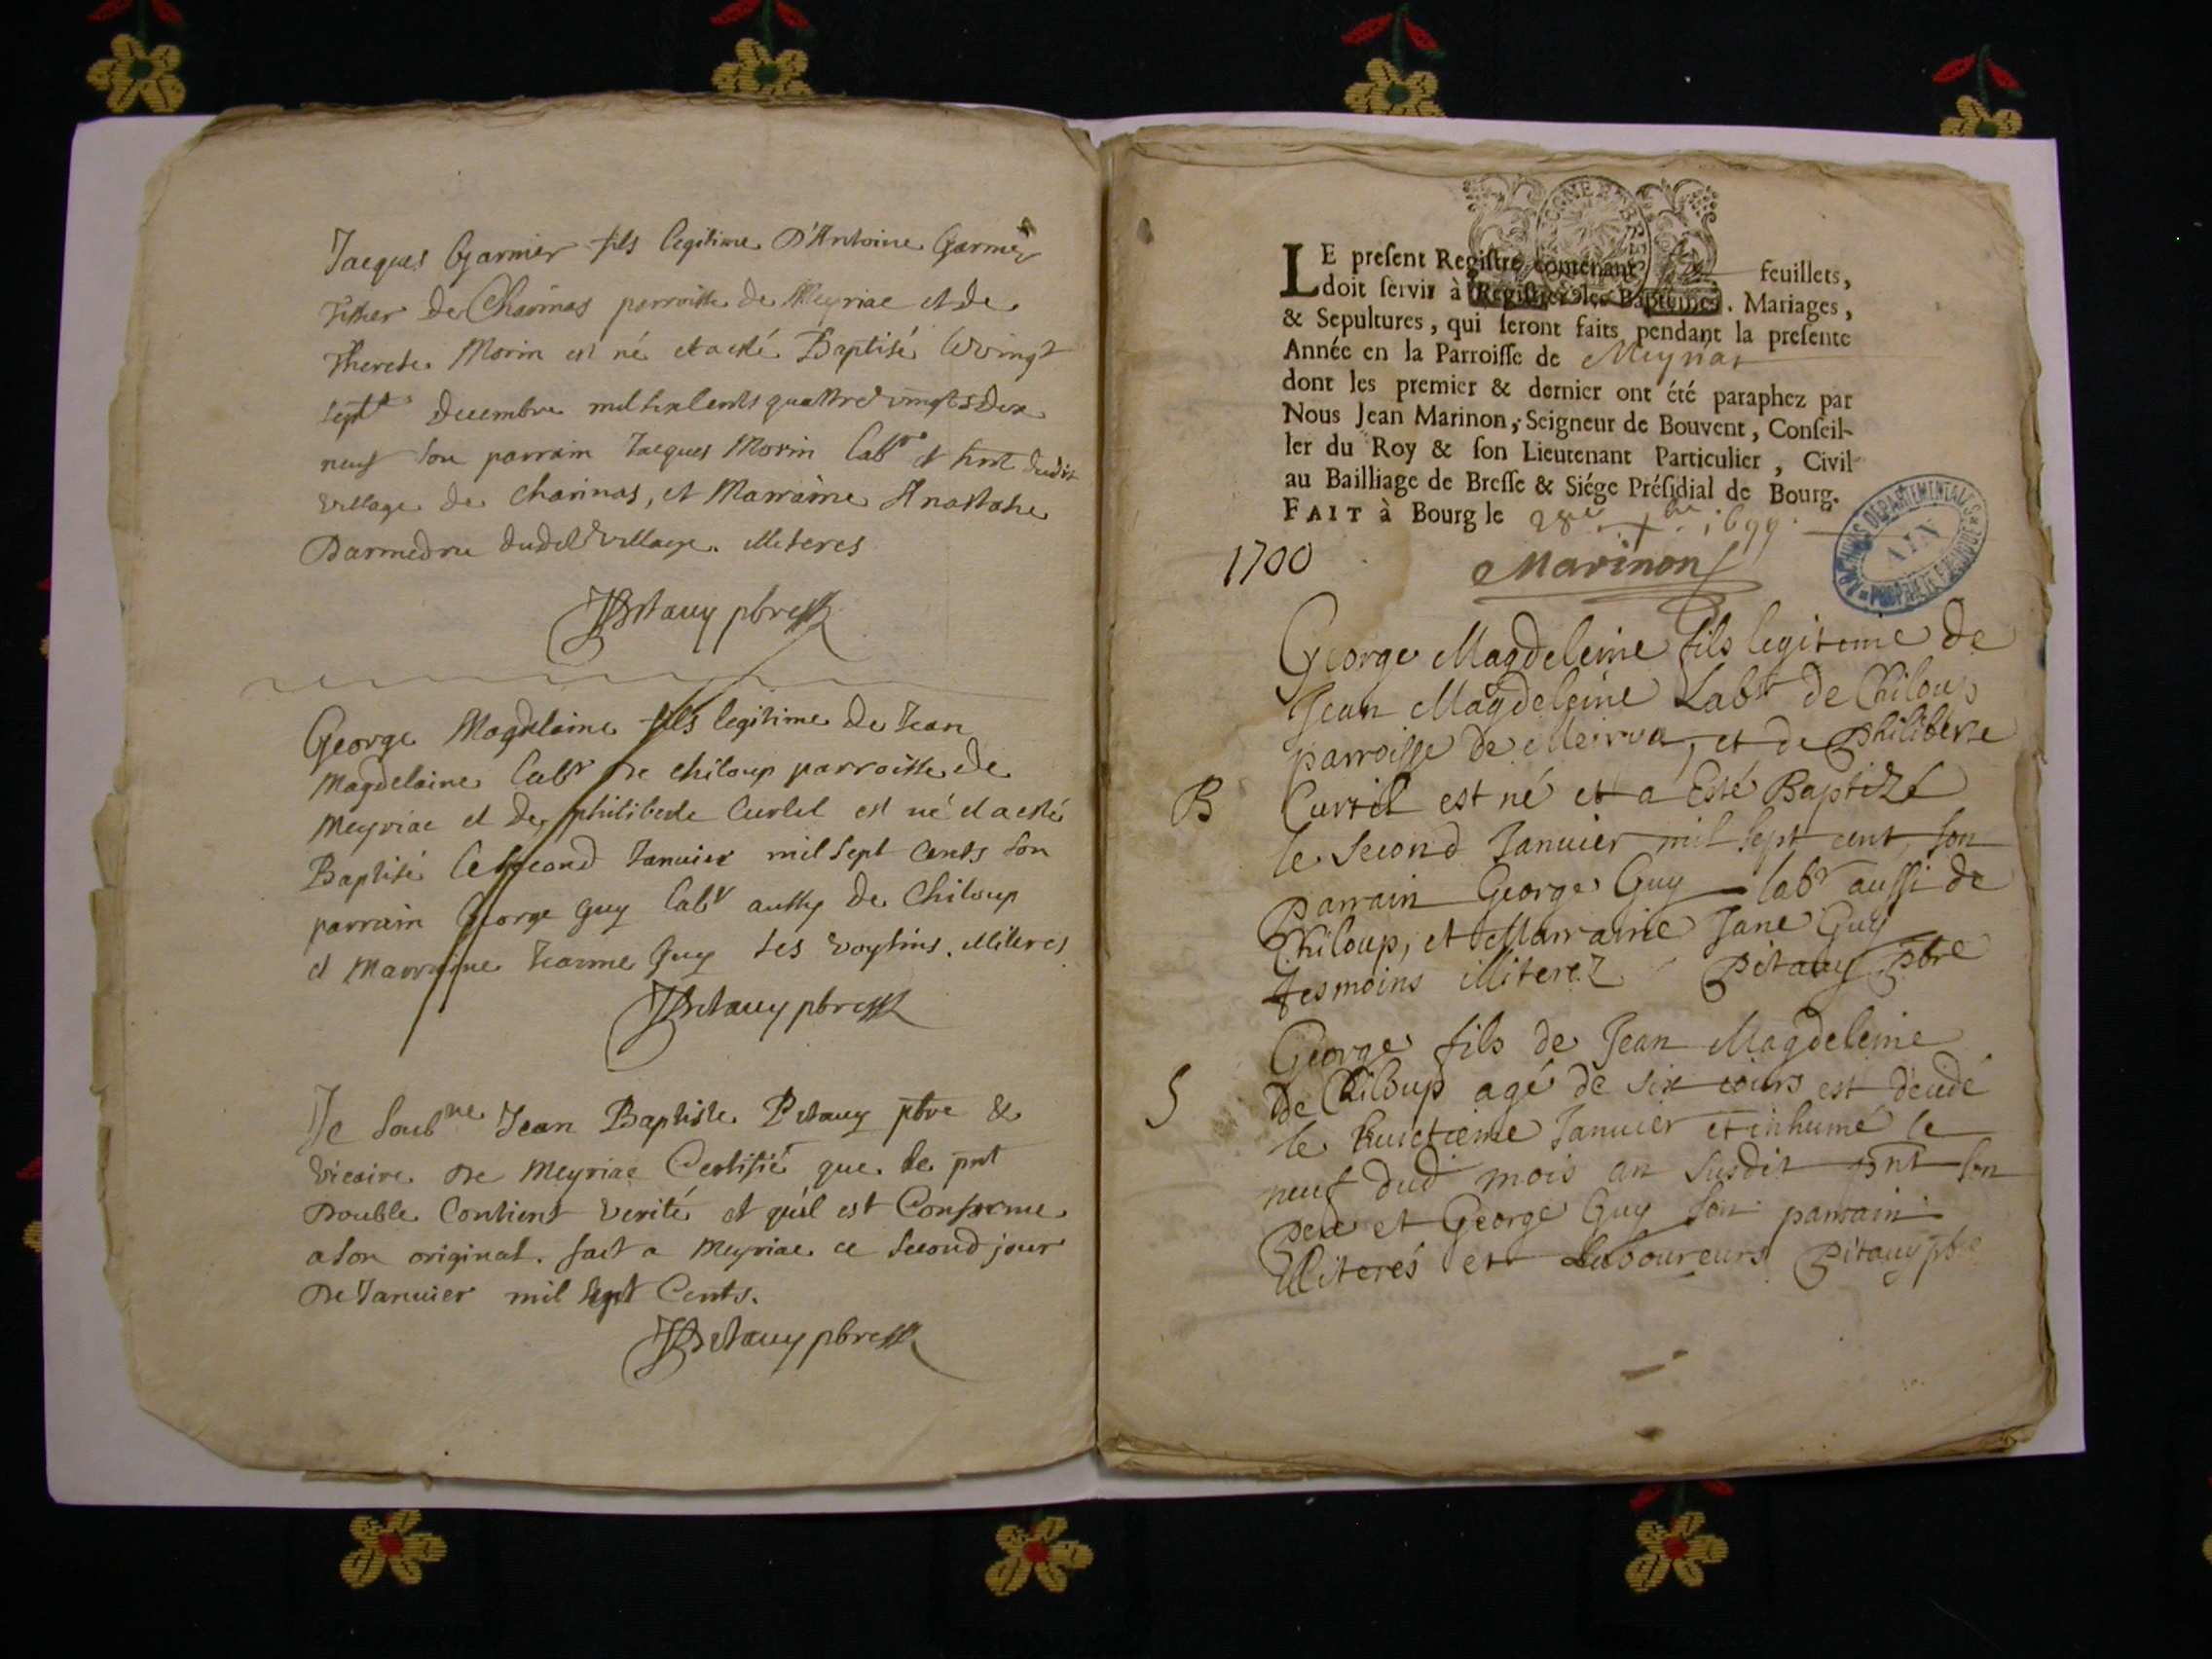 Jacques Garnier fils legitime D'Antoine Garnier
De Charinas parroisse de Meyriac et de
Therese Morin est né et a esté Baptisé le vingt
sept Decembre mil six cents quattre vingts dix
neuf son parrain Jacques Morin Labr et
village de Charinas, et Marraine
dudt village. illiteres
JBPitauy pbre
George Magdelaine fils legitime de Jean
Magdelaine Labr de Chiloup parroisse de
Meyriac et de philiberte Curtil est né et a esté
Baptisé le second Januier mil sept cents son
parrain George Guy Labr aussy de Chiloup
et Marraine Jeanne Guy ses voysins. illiteres
JBPitauy pbre
Je soubne Jean Baptiste Pitauy pbre &
vicaire de Meyriac Certifié que le pnt
Double Contient verité et qu'il est Conforme
a son original. fait a Meyriac ce second jour
de Januier mil sept Cents.
JBPitauy pbre
LE present Registre contenant feuillets,
doit servir à Registrer les Baptêmes, Mariages,
& Sepultures, qui seront faits pendant la presente
Année en la Parroisse de Meyria
dont les premier & dernier ont été paraphez par
Nous Jean Marinon, Seigneur de Bouvent, Conseil-
ler du Roy & son Lieutenant Particulier, Civil
au Bailliage de Bresse & Siége Présidial de Bourg.
FAIT à Bourg le 28e Xbre 1699.
ARCHIVES DEPARTEMENTALES
AIN
PROPRIETE PUBLIQUE
1700
Marinon
George Magdeleine fils legiteme de
Jean Magdeleine Labr de Chiloup
parroisse de et de Philiberte
B Curtil est né et a Esté Baptizé
le Second Januier mil sept cent, son
Parrain George Guy labr aussi de
Chiloup, et Marraine Jane Guy
tesmoins illiterez Pitauy pbre
George fils de Jean Magdeleine
S De Chiloup agé de six iours est décedé
le huictieme Januier et inhumé le
neuf dud mois an susdit pnt son
Pere et George Guy son parrain
illiterés et Laboureurs Pitauy pbre